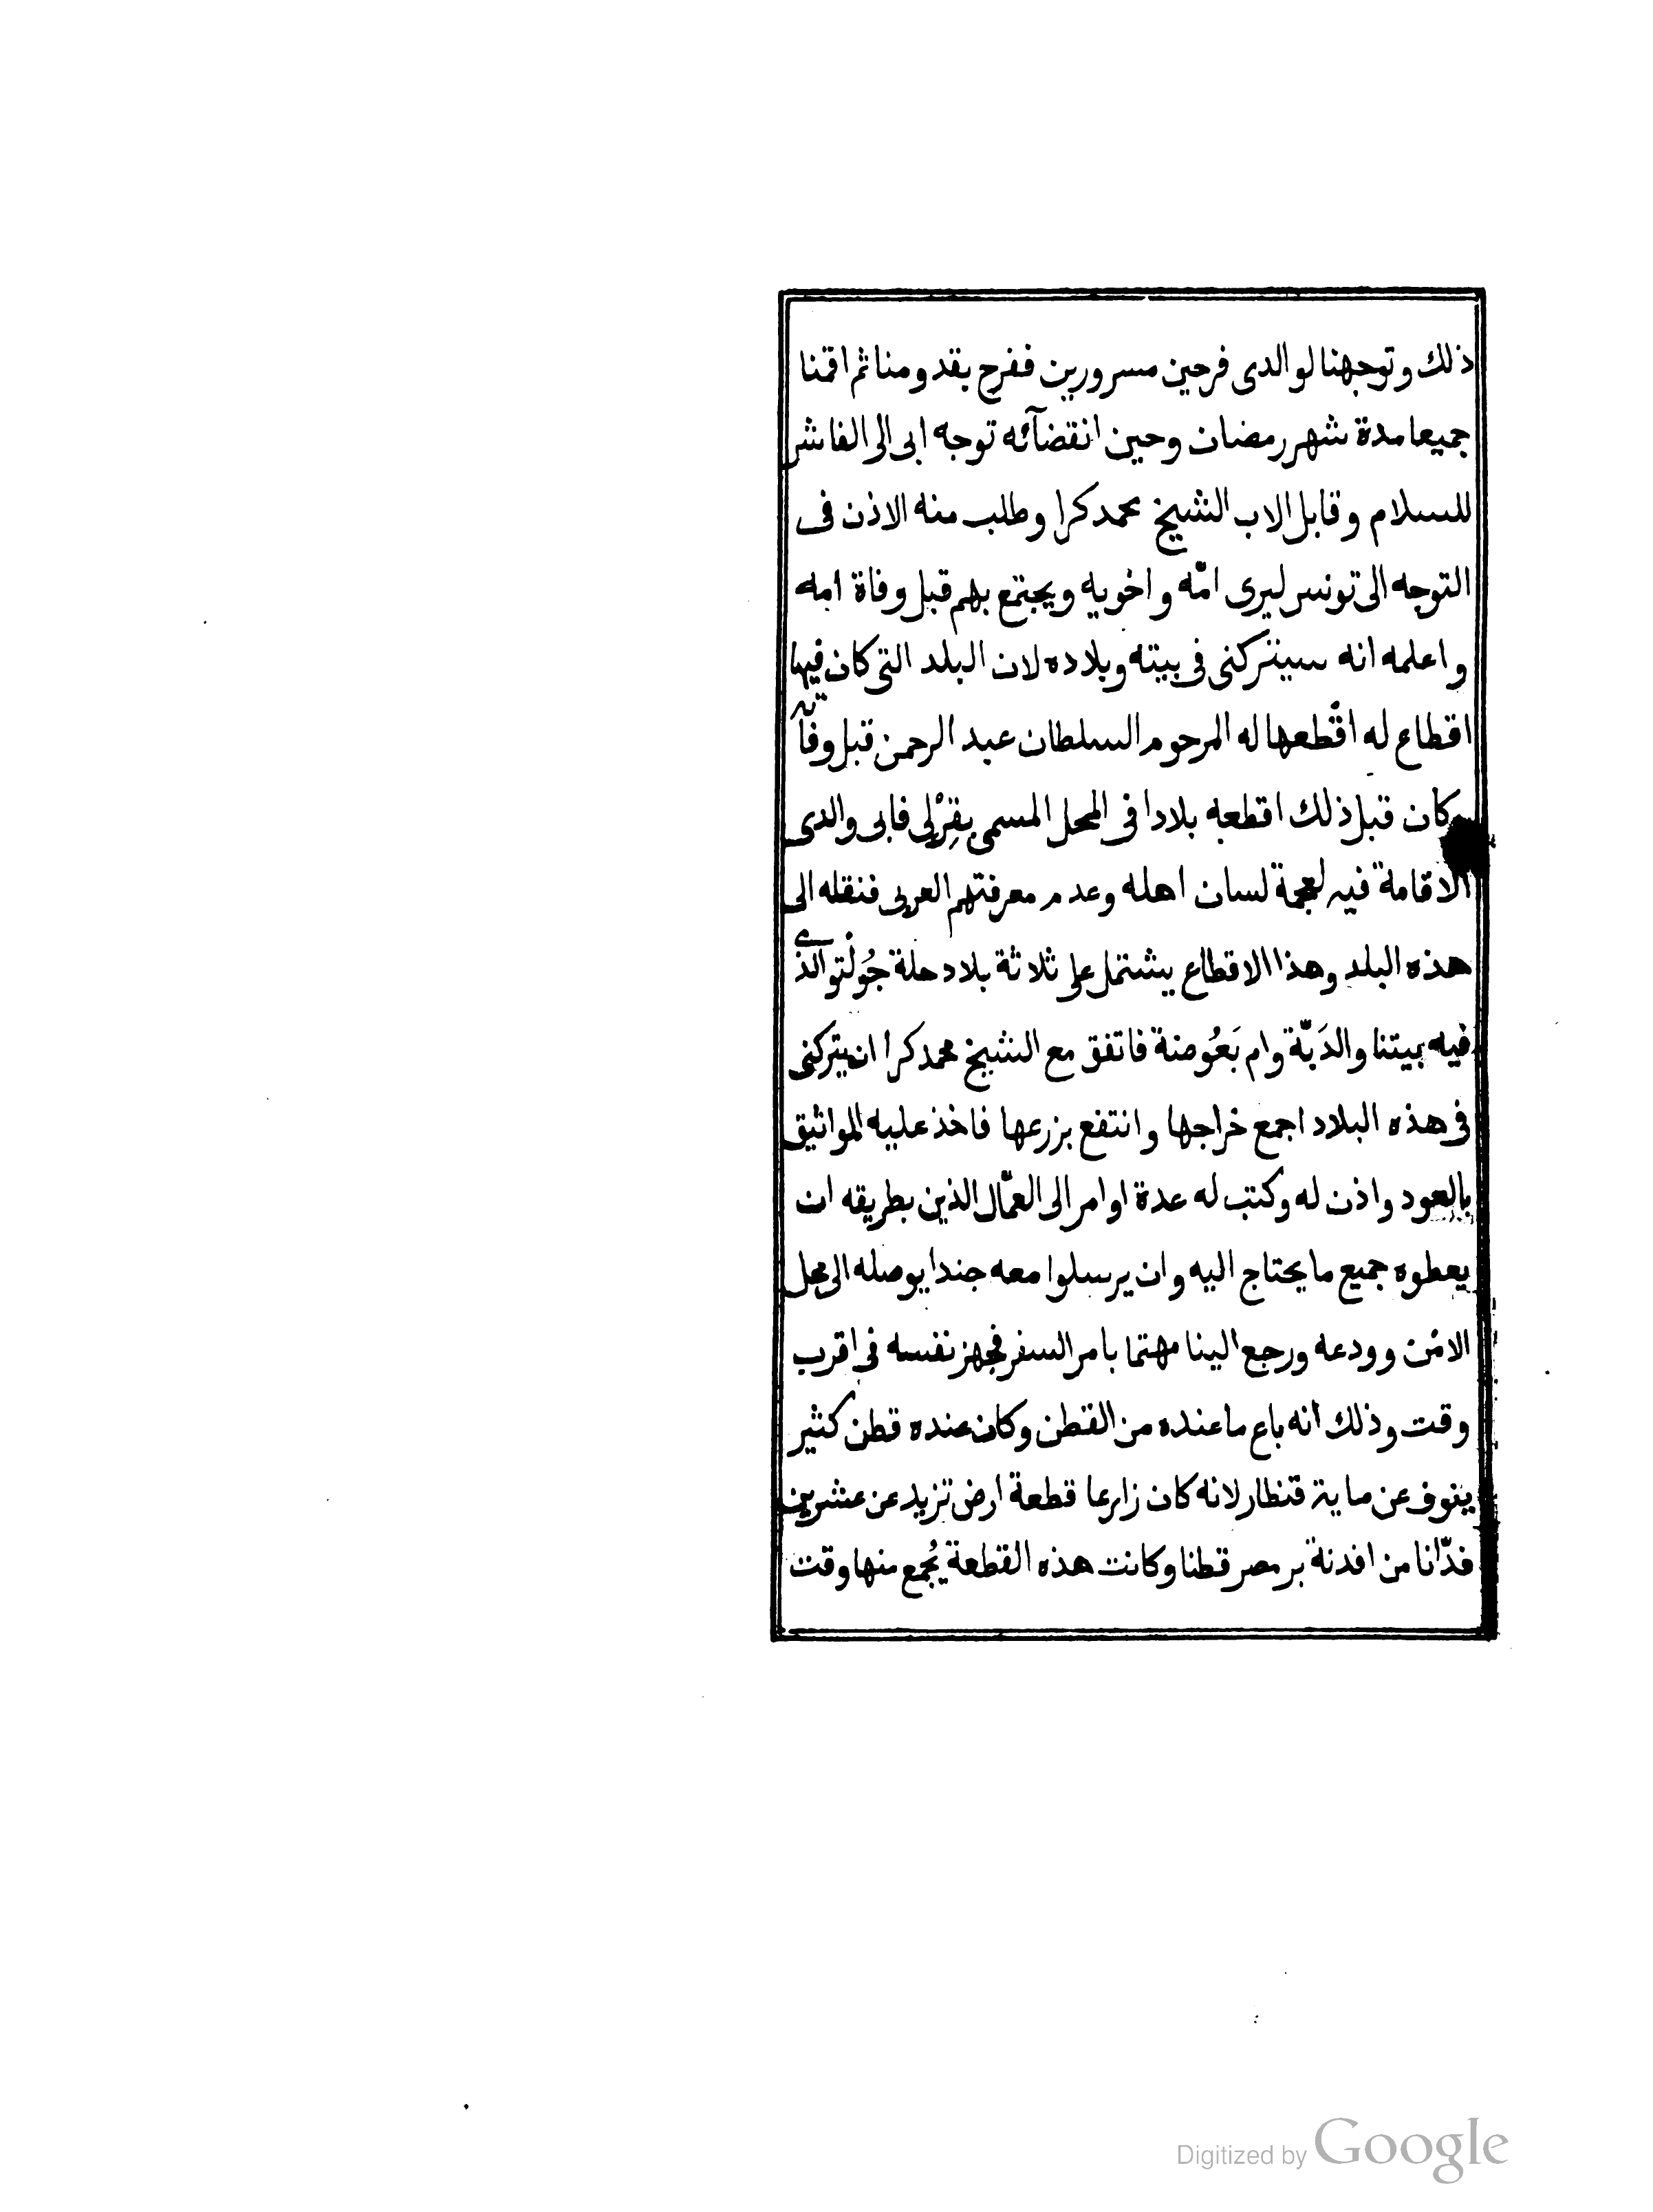 ذلك وتوجهنا لوالدى فرحين مسرورين ففرح بقدومنا ثم اقمنا
جميعا مدة شهر رمضان وحين انقضآئه توجه ابى الى الفاشر
للسلام وقابل الاب الشيخ محمد كرا وطلب منه الاذن فى
التوجه الى تونس ليرى امّه واخويه ويجتمع بهم قبل وفاة امه
واعلمه انه سيتركنى فى بيته وبلاده لان البلد التى كان فيها
اقطاع له اقطعها له المرحوم السلطان عبد الرحمن قبل وفاته
وكان قبل ذلك اقطعه بلادا فى المحل المسمى بقِرْلِى فابى والدى
الاقامة فيه لعجمة لسان اهله وعدم معرفتهم العربى فنقله الى
هذه البلد وهذا الاقطاع يشتمل على ثلاثة بلاد حلة جُولْتو الذى
فيه بيتنا والدَبّة وام بَعُوضة فاتفق مع الشيخ محمد كرا ان يتركنى
فى هذه البلاد اجمع خراجها وانتفع بزرعها فاخذ عليه المواثيق
بالعود واذن له وكتب له عدة اوامر الى العمّال الذين بطريقه ان
يعطوه جميع ما يحتاج اليه وان يرسلوا معه جندا يوصله الى محل
الامْن وودعه ورجع الينا مهتما بامر السفر فجهز نفسه فى اقرب
وقت وذلك انه باع ما عنده من القطن وكان عنده قطن كثير
ينوف عن ماية قنطار لانه كان زارعا قطعة ارض تزيد عن عشرين
فدّانا من افدنة بر مصر قطنا وكانت هذه القطعة يُجمع منها وقت
Digitized by Google